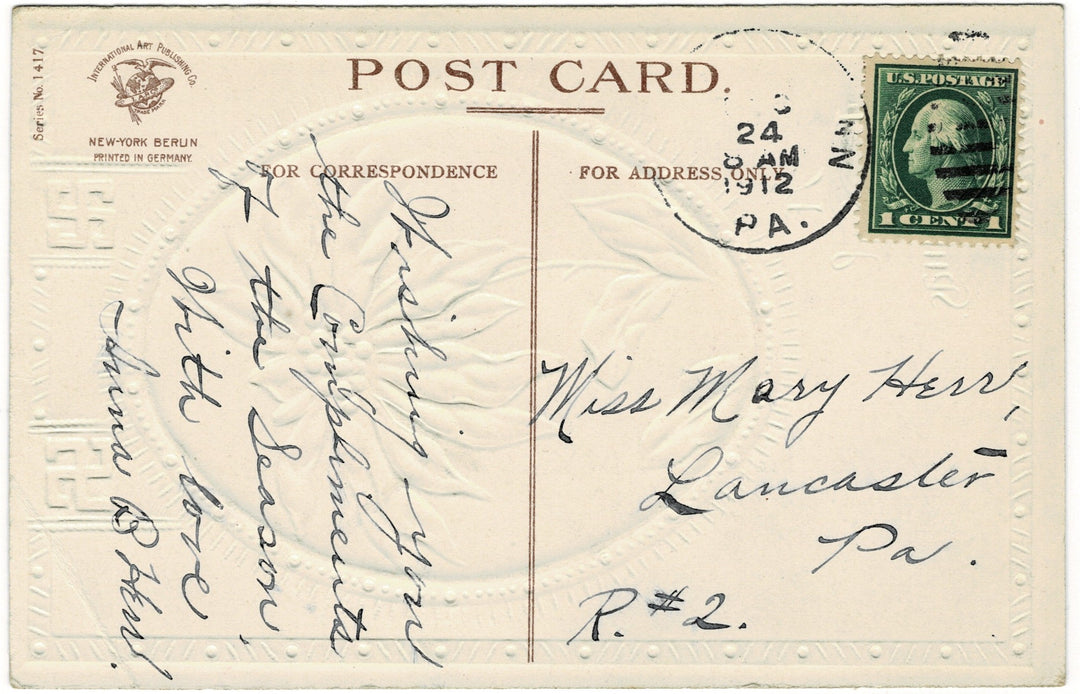 POST CARD.
Series No. 1417
INTERNATIONAL ART PUBLISHING Co.
NEW-YORK BERLIN
PRINTED IN GERMANY.
FOR CORRESPONDENCE
FOR ADDRESS ONLY
24
8 AM
1912
PA.
U.S. POSTAGE
1 CENT 1
Wishing you
the Compliments
of the Season,
With love,
Anna B Herr.
Miss Mary Herr,
Lancaster
Pa.
R. #2.